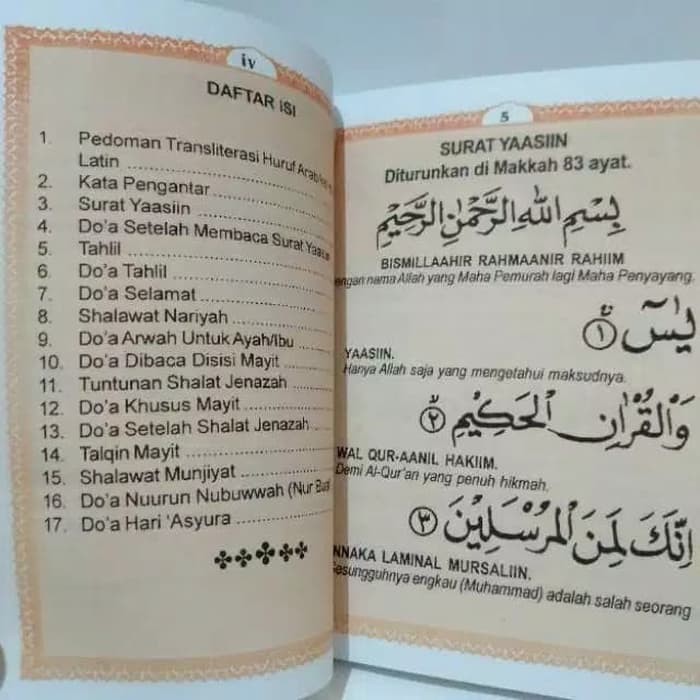 iv
DAFTAR ISI
1. Pedoman Transliterasi Huruf Arab
Latin ........
2. Kata Pengantar ........
3. Surat Yaasiin ........
4. Do'a Setelah Membaca Surat Yaasiin
5. Tahlil ........
6. Do'a Tahlil ........
7. Do'a Selamat ........
8. Shalawat Nariyah ........
9. Do'a Arwah Untuk Ayah/Ibu ........
10. Do'a Dibaca Disisi Mayit ........
11. Tuntunan Shalat Jenazah ........
12. Do'a Khusus Mayit ........
13. Do'a Setelah Shalat Jenazah ........
14. Talqin Mayit ........
15. Shalawat Munjiyat ........
16. Do'a Nuurun Nubuwwah (Nur
17. Do'a Hari 'Asyura ........
5
SURAT YAASIIN
Diturunkan di Makkah 83 ayat.
بِسْمِ اللهِ الرَّحْمٰنِ الرَّحِيْمِ
BISMILLAAHIR RAHMAANIR RAHIIM
engan nama Allah yang Maha Pemurah lagi Maha Penyayang.
يٰسۤ ۝١
YAASIIN.
Hanya Allah saja yang mengetahui maksudnya.
وَالْقُرْاٰنِ الْحَكِيْمِ ۝٢
WAL QUR-AANIL HAKIIM.
Demi Al-Qur'an yang penuh hikmah.
اِنَّكَ لَمِنَ الْمُرْسَلِيْنَ ۝٣
NNAKA LAMINAL MURSALIIN.
Sesungguhnya engkau (Muhammad) adalah salah seorang